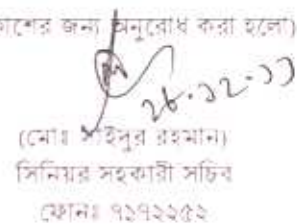 কাশের জন্য অনুরোধ করা হলো)
২৮.১২.১১
(মোঃ সাইদুর রহমান)
সিনিয়র সহকারী সচিব
ফোনঃ ৭১৭২২৫২